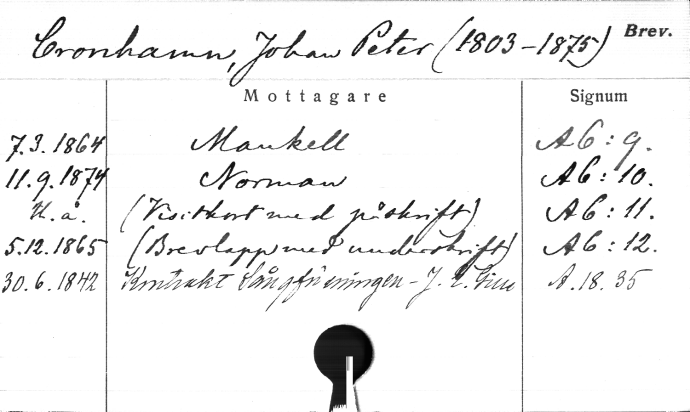 Cronhamn, Johan Peter (1803-1875) Brev.
Mottagare Signum
7.3.1864 Mankell A6:9.
11.9.1874 Norman A6:10.
U.å. (Visitkort med påskrift) A6:11.
5.12.1865 (Brevlapp med underskrift) A6:12.
30.6.1842 Kontrakt Sångföreningen - J. A.18.35